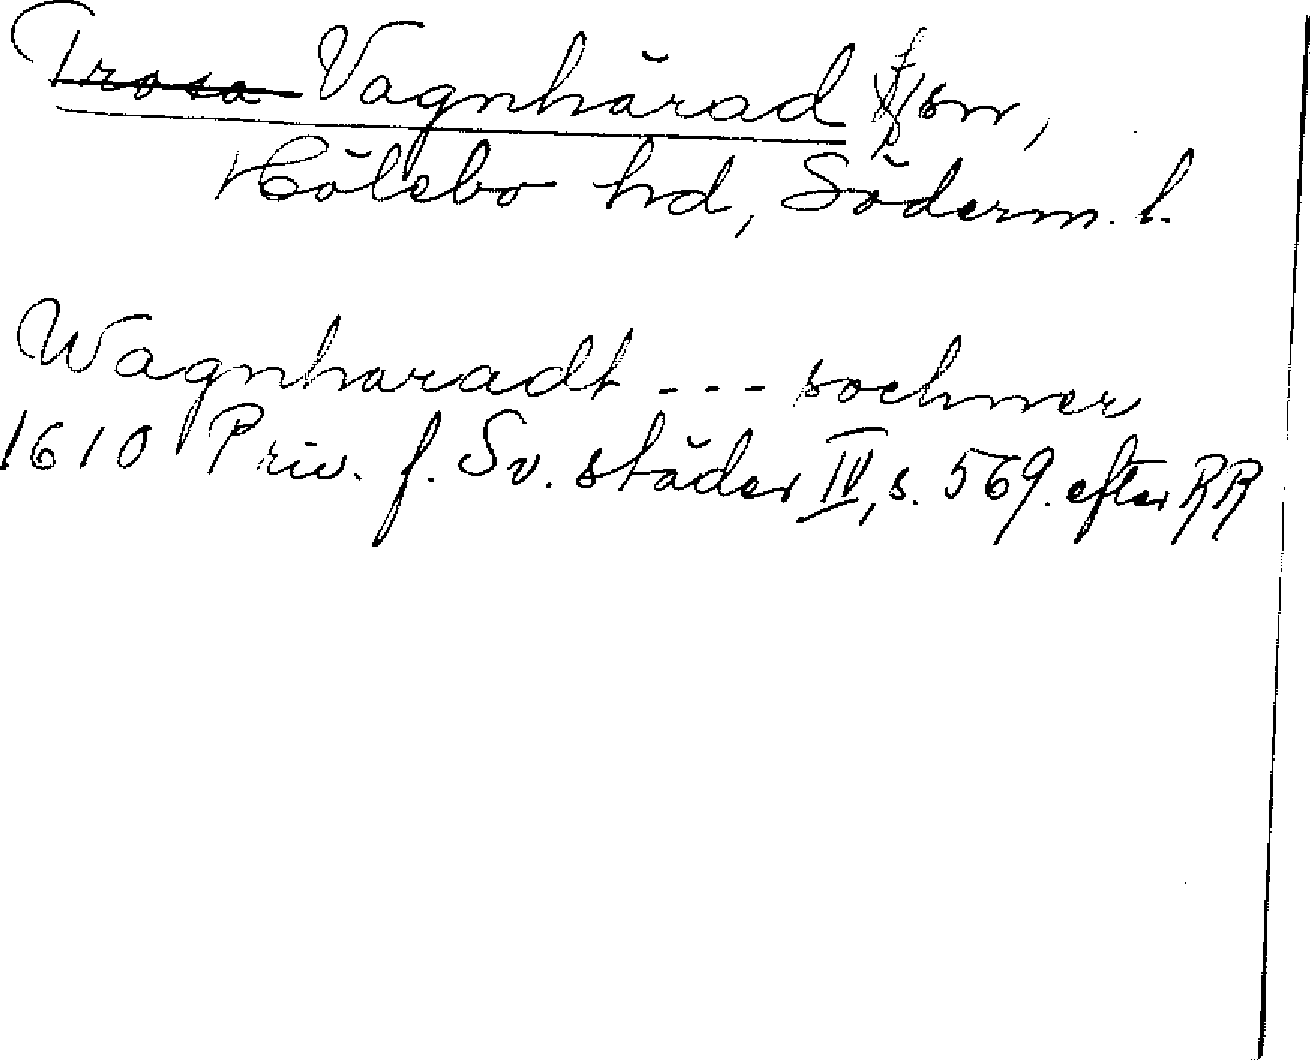 Trosa Vagnhärad sn,
Hölebo hd, Söderm. l.
Wagnharadt --- sochner
1610 Priv. f. Sv. städer IV, s. 569. efter RR